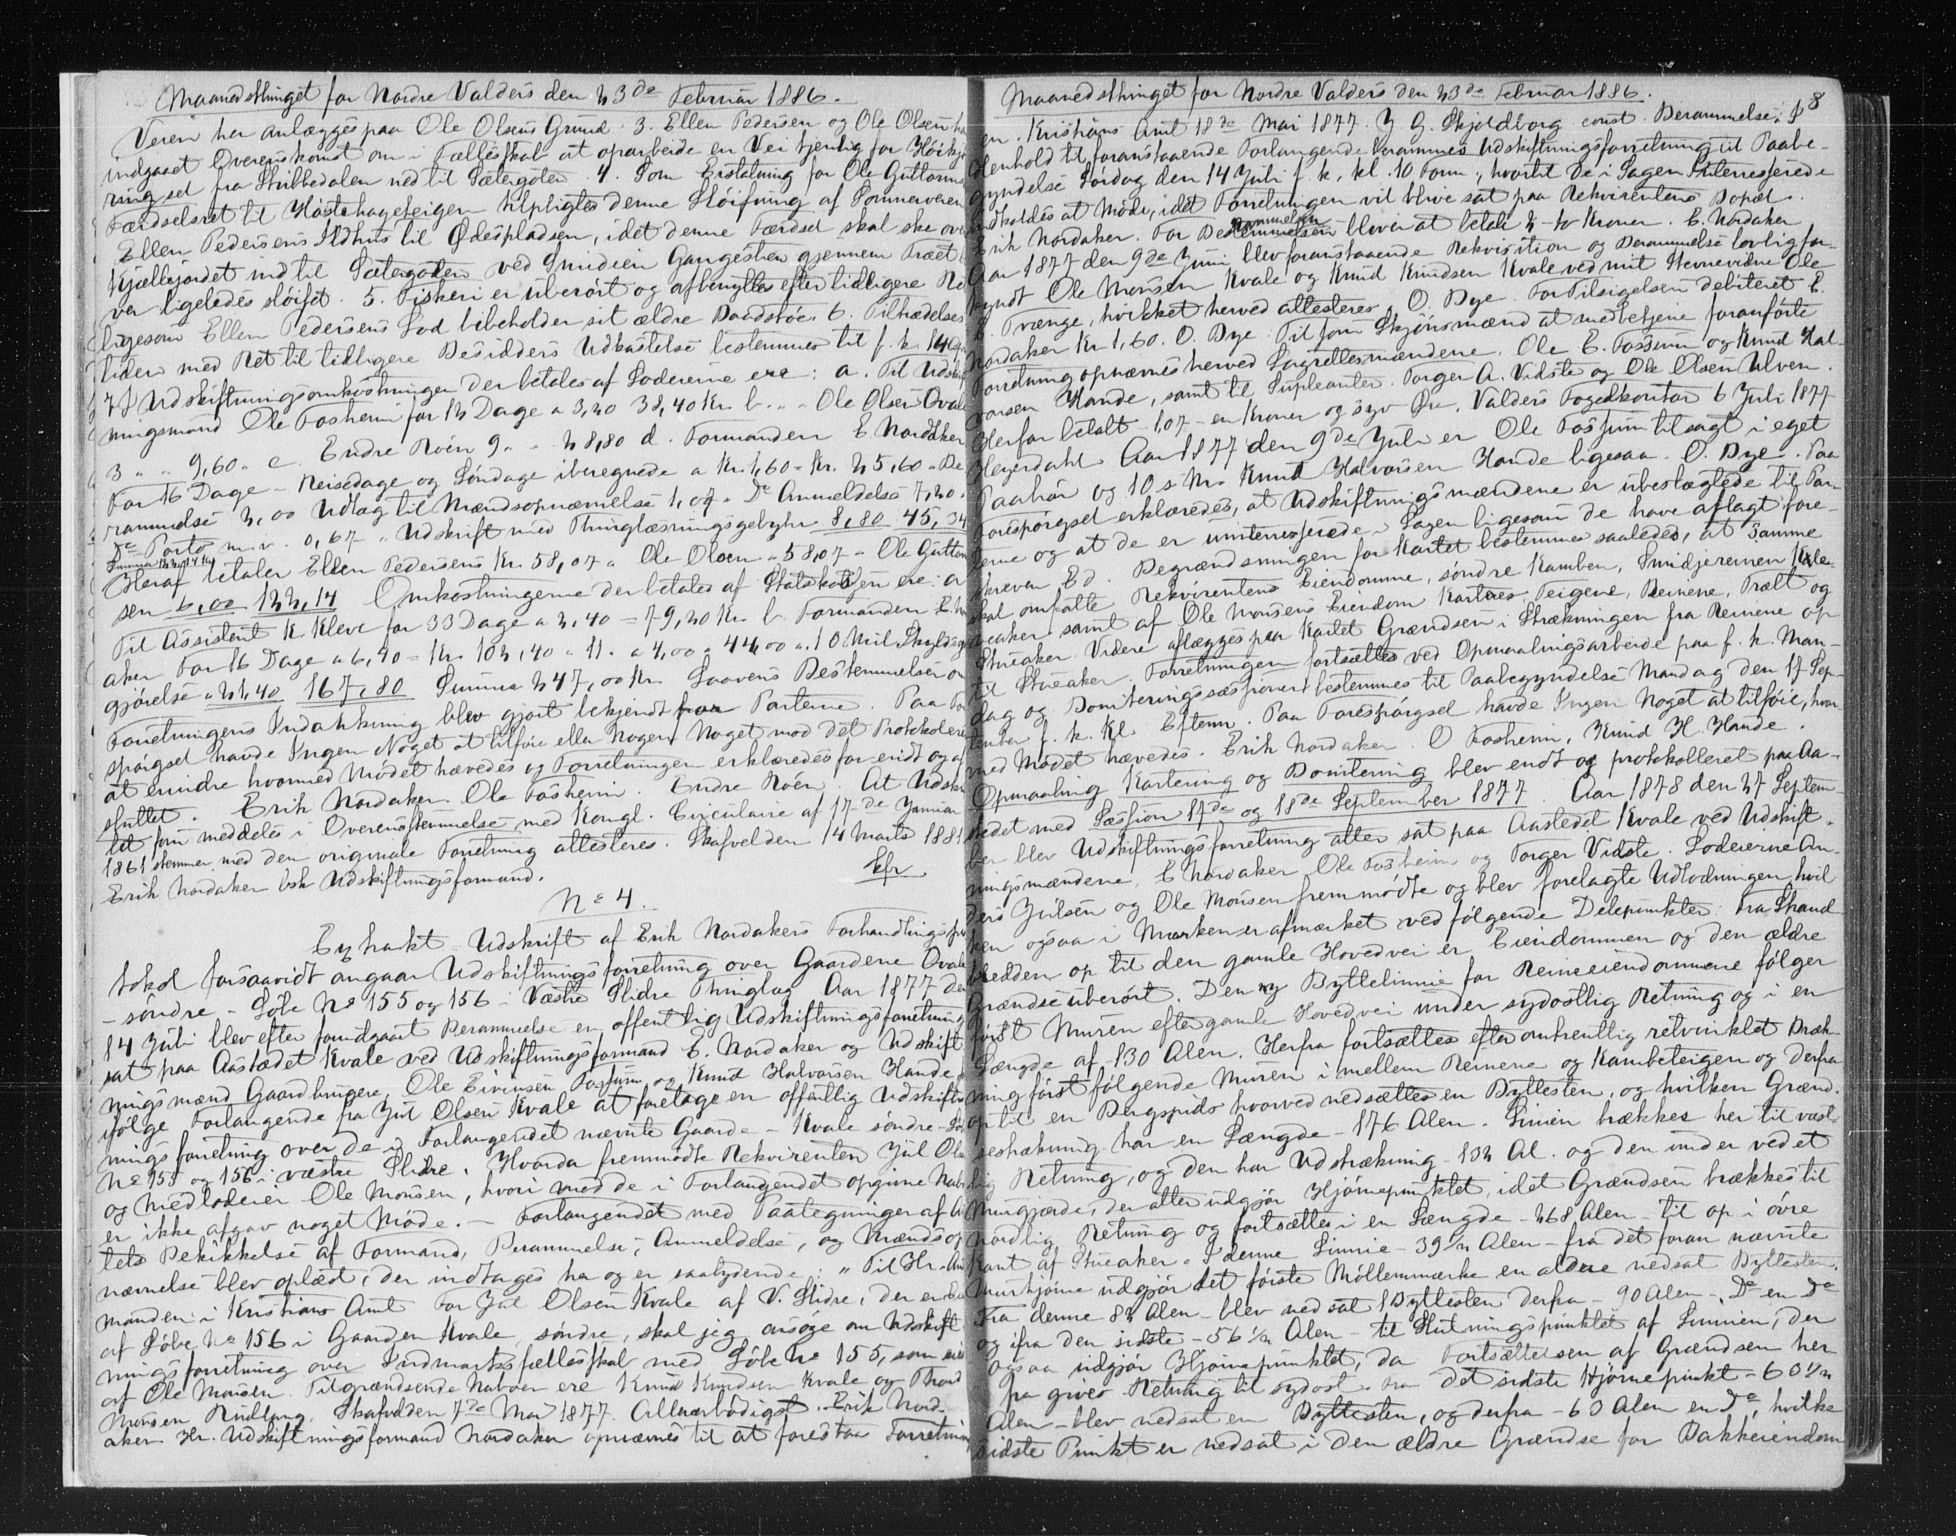 Maanedsthinget for Nordre Valders den 23de Februar 1886.
Veien her anlægges paa Ole Olsens Grund. 3. Ellen Pedersen og Ole Olsen har
indgaaet Overenskomst om i Fællesskab at oparbeide en Vei tjenlig for Høikjø-
ring sed fra Skilbedalen ned til Sætergoten. 4. Som Erstatning for Ole Guttorms
Færdselsret til Høstehageteigen tilpligtes denne Sløifning af Sommerveien
Ellen Pedersens Ildhus til Ødespladsen, idet denne Færdsel skal ske over
Kjællejordet ind til Sætergoten ved Smidien Gangestien gjennem Træet
ver ligeledes sløifet. 5. Fiskeri er uberørt og afbenyttes efter tidligere Re
ligesom Ellen Pedersens Lod bibeholder sit ældre Baadstøe. 6. Tiltrædelses
tiden med Ret til tidligere Besidders Udkastelse bestemmes til f. k. 14
7) Udskiftningsomkostninger der betales af Lodeierne ere: a. Til Udskift
ningsmand Ole Fosheim for 12 Dage a 3,20 38,40 Kr. b. " " Ole Olsen Qvale
3 " " 9,60 " c. Endre Roen 9 " " 28,80 d. Formanden E Nordaker
For 16 Dage - Reisedage og Søndage iberegnede a Kr. 1,60 - Kr. 25,60 " Be
rammelse 2,00 Udlæg til Mændsopnævnelse 1,07 " Do Anmeldelse 7,20 "
Do Porto m. v. 0,67 " Udskrift med Thinglæsningsgebyhr 8,80 45,34
Summa 122,14 Kr.
Heraf betaler Ellen Pedersens Kr. 58,07 " Ole Olsen " 58,07 " Ole Guttorm
sen 6,00 122,14 Omkostningerne der betales af Statskassen ere: a
Til Assistent K. Kleve for 33 Dage a 2,40 = 79,20 Kr. b. Formanden E No
aker For 16 Dage a 6,40 - Kr. 102,40 " 11. a 4,00 " 44,00 " 10 Mil Skyds
gjørelse " 21,40 167,80 Summa 247,00 Kr. Lovens Bestemmelser om
Forretningens Indankning blev gjort bekjendt for Parterne. Paa Fo
spørgsel havde Ingen Noget at tilføie eller Nogen Noget mod det Protokolere
at erindre hvormed Mødet hævedes og Forretningen erklæredes for endt og af
sluttet. Erik Nordaker. Ole Fosheim. Endre Roen. At Udskrif
tet som meddeles i Overensstemmelse med Kongl. Circulaire af 17de Januar
1861 stemmer med den originale Forretning attesteres. Skafvel den 14 Marts 1881
Erik Nordaker bsk Udskiftningsformand. Efr
No 4.
Extrakt - Udskrift af Erik Nordakers Forhandlingspro
tokol forsaavidt angaar Udskiftningsforretning over Gaardene Qvale
- søndre - Løbe No 155 og 156 - i Vestre Slidre Thinglag Aar 1877 den
14 Juli blev efter foregaaet Berammelse en offentlig Udskiftningsforretning
sat paa Aastædet Kvale ved Udskiftningsformand E. Nordaker og Udskift
ningsmænd Gaardbrugere Ole Eivinsen Fossum og Knud Halvorsen Hande
ifølge Forlangende fra Jul Olsen Kvale at foretage en offentlig Udskift
ningsforretning over de i Forlangendet nævnte Gaarde - Kvale søndre - Lø
No 155 og 156 i vestre Slidre. Hvorda fremmødte Rekvirenten Jul Ols
og Medlodeier Ole Monsen, hvori mod de i Forlangendet opgivne Nabo
er ikke afgav noget Møde. - Forlangendet med Paategninger af
tets Beskikkelse af Formand, Berammelse, Anmeldelse, og Mændsop
nævnelse blev oplæst, der indtages her og er saalydende: "Til Hr. Amt
manden i Kristians Amt For Jul Olsen Kvale af V. Slidre, der er Ei
af Løbe No 156 i Gaarden Kvale søndre, skal jeg ansøge om Udskift
ningsforretning over Indmarksfællesskab med Løbe No 155, som eies
af Ole Monsen. Tilgrændsende Naboer ere Knud Knudsen Kvale og Thord
Monsen Rudlang. Skafvel den 7de Mai 1877. Allerærbødigst. Erik Nord-
aker. Hr. Udskiftningsformand Nordaker opnævnes til at forestaa Forretning
Maanedsthinget for Nordre Valders den 23de Februar 1886.
8
en. Kristians Amt 18de Mai 1877. J G. Skjoldborg const. Berammelse: I
Henhold til foranstaaende Forlangende berammes Udskiftningsforretning til Paabe-
gyndelse Lørdag den 14 Juli f. k. kl. 10 Form., hvortil de i Sagen Interresserede
indkaldes at Møde, idet Forretningen vil blive sat paa Rekvirentens Bopæl.
Erik Nordaker. For Berammelsen bliver at betale 2 - to Kroner. E. Nordaker
Aar 1877 den 9de Juni blev foranstaaende Rekvisition og Berammelse lovlig for-
kyndt Ole Monsen Kvale og Knud Knudsen Kvale ved mit Stevnevidne Ole
E. Tvænge, hvilket herved attesteres. O. Bye. For Tilsigelsen debiteret E.
Nordaker Kr 1,60. O. Bye. Til som Skjønsmænd at medbetjene foranførte
Forretning opnævnes herved Lagrettesmændene, Ole E. Fossum og Knud Hal-
vorsen Hande, samt til Supleanter Torger A. Vidste og Ole Olsen Ulven.
Herfor betalt - 1,07 - en Krone og syv Øre. Valders Fogedkontor 6 Juli 1877
Heyerdahl. Aar 1877 den 9de Juli er Ole Fossum tilsagt i eget
Paahør og 10 s. M. Knud Halvorsen Hande ligesaa. O. Bye. Paa
Forespørgsel erklæredes, at Udskiftningsmændene er ubeslægtede til Par-
terne og at de er uinterresserede i Sagen ligesom de have aflagt fore-
skreven Ed. Begrændsningen for Kartet bestemmes saaledes, at Samme
skal omfatte Rekvirentens Eiendomme, søndre Kamben, Smidjereinen Kjæle-
aaker samt af Ole Monsens Eiendom Kartnes, Teigene, Reinene, Træet og
Strieaker. Videre aflægges paa Kartet Grændsen i Strækningen fra Reinene op
til Strieaker. Forretningen fortsættes ved Opmaalingsarbeide paa f. k. Man-
dag og Boniteringssessionen bestemmes til Paabegyndelse Mandag den 17 Sep-
tember f. k. Kl. Efterm. Paa Forespørgsel havde Ingen Noget at tilføie, hvor
med Mødet hævedes. Erik Nordaker. O Fosheim, Knud H. Hande.
Opmaaling Kartering og Bonitering blev endt og protokolleret paa Aa-
stedet med Session 17de og 18de September 1877. Aar 1878 den 27 Septem-
ber blev Udskiftningsforretning atter sat paa Aastedet Kvale ved Udskift-
ningsmændene, E Nordaker Ole Fosheim og Torger Vidste. Lodeierne An-
ders Julsen og Ole Monsen fremmødte og blev forelagte Udlodningen, hvil
ken ogsaa i Marken er afmærket ved følgende Delepunkter: Fra Strand
bredden op til den gamle Hovedvei er Eiendommen og den ældre
Grændse uberørt. Den ny Byttelinie for Reineeiendommene følger
først Muren efter gamle Hovedvei under sydostlig Retning og i en
Længde af - 130 Alen. Herfra fortsættes efter omtrentlig retvinklet Bræk-
ning først følgende Muren i mellem Reinene og Kambeteigen og derfra
op til en Bergspids hvorved nedsættes en Byttesten, og hvilken Grænd-
sestrækning har en Længde - 176 Alen. Linien brækkes her til vest-
lig Retning, og den har Udstrækning - 132 Al. og den under ved et
Murgjærde, der atter udgjør Hjørnepunktet, idet Grændsen brækkes til
nordlig Retning og fortsættes i en Længde - 268 Alen - til op i øvre
Kant af Strieaker. I denne Linnie - 39 1/2 Alen - fra det foran nævnte
Murhjørne udgjør det første Mellemmærke en aldre nedsat Byttesten.
Fra denne 82 Alen - blev nedsat 1 Byttesten derfra - 90 Alen - Do en Do
og ifra den sidste - 56 1/2 Alen - til Slutningspunktet af Linnien, der
ogsaa udgjør Hjørnepunktet, da Fortsættelsen af Grændsen her
fra gives Retning til sydost. Fra det sidste Hjørnepunkt - 60 1/2
Alen - blev nedsat en Byttesten, og derfra - 63 Alen en Do, hvilke
sidste Punkt er nedsat i den ældre Grændse for Bakkeeiendom